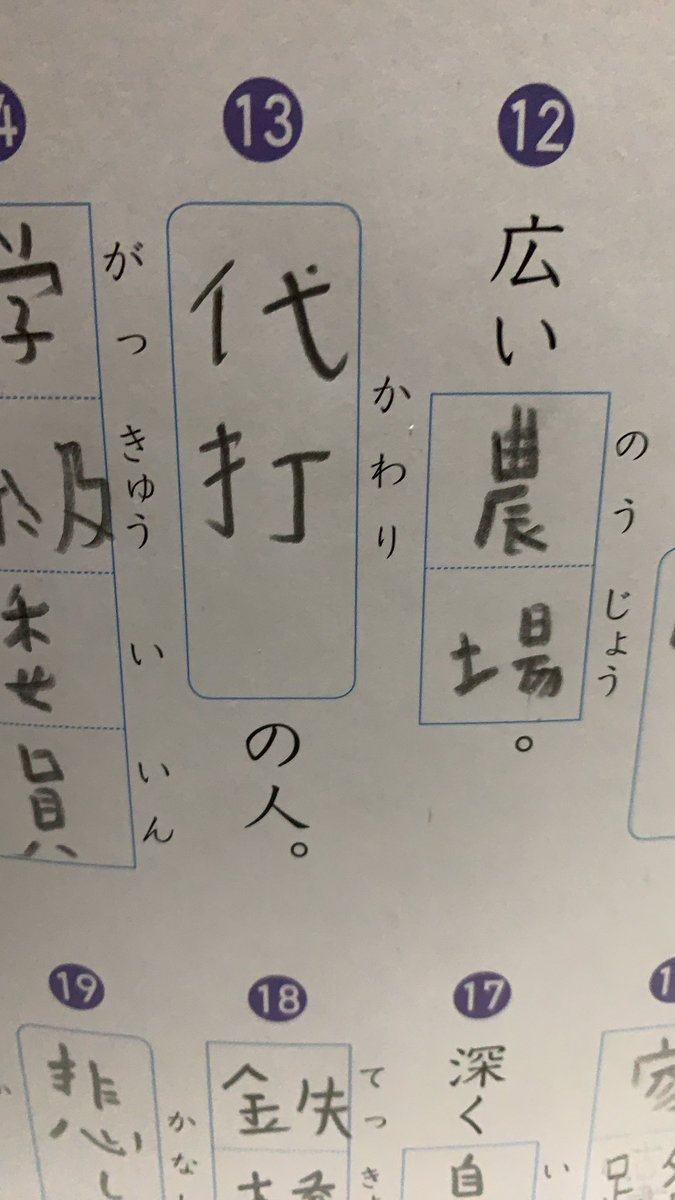 12
広い農場。
のうじょう
13
代打の人。
かわり
14
学級委員
がっきゅういいん
17
深く自
い
18
金失
てっ
19
悲し
かな